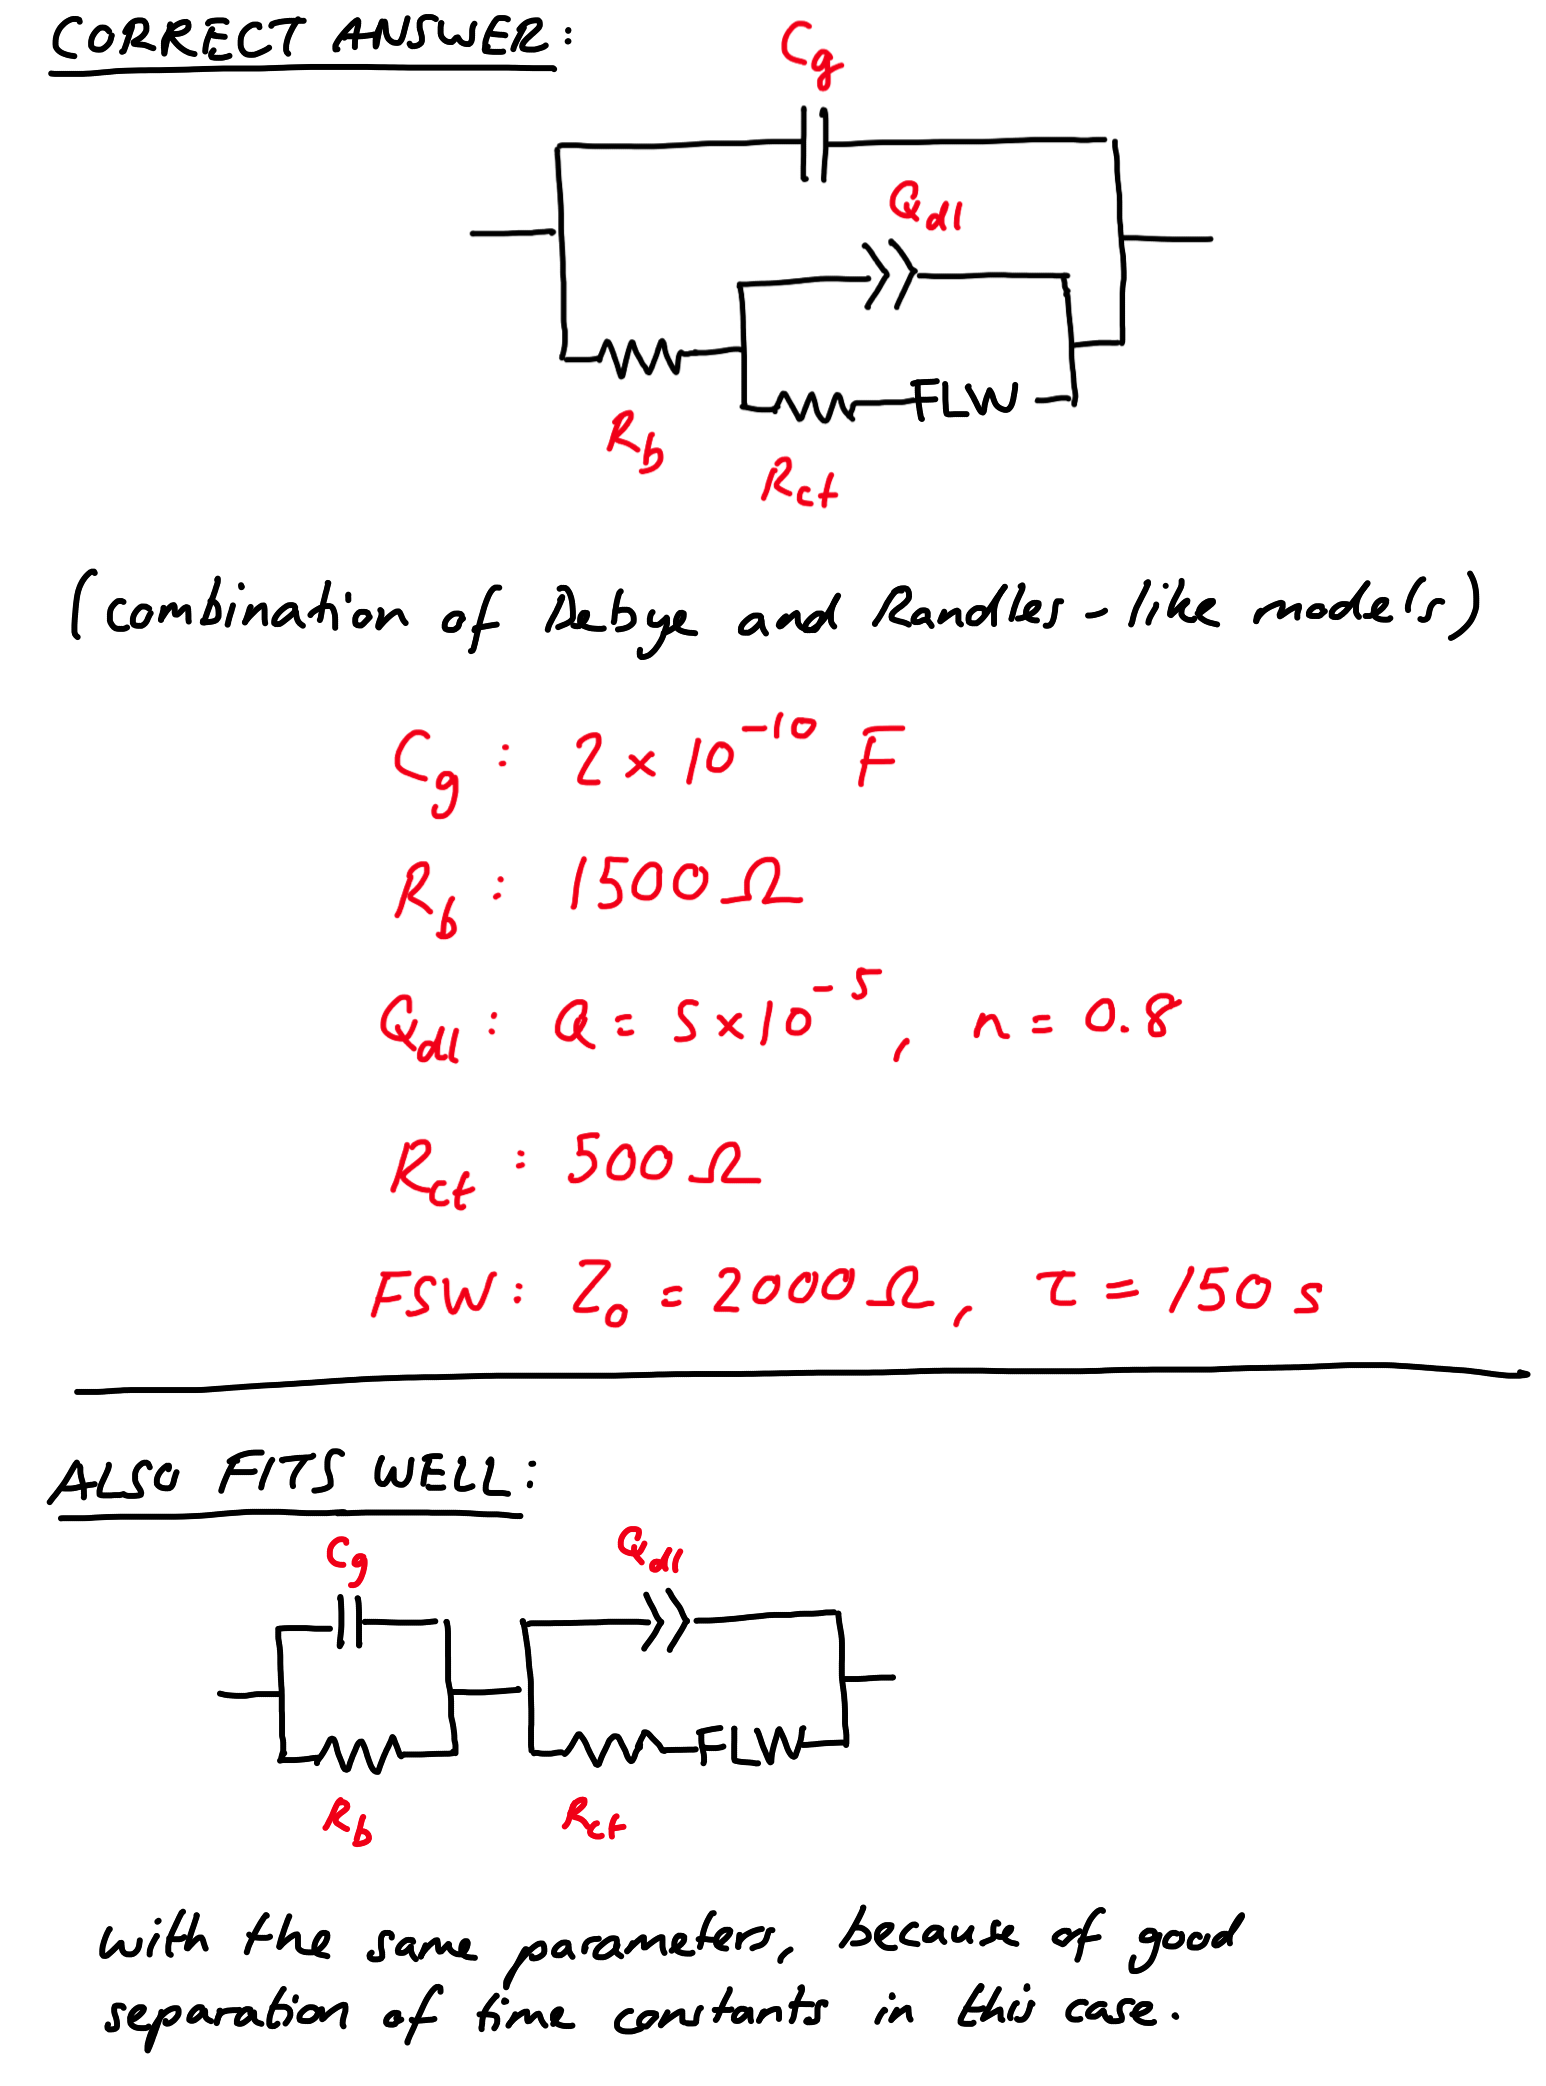 CORRECT ANSWER:
Cg
Qdl
FLW
Rb
Rct
(combination of Debye and Randles-like models)
Cg : 2 × 10⁻¹⁰ F
Rb : 1500 Ω
Qdl : Q = 5×10⁻⁵, n = 0.8
Rct : 500 Ω
FSW: Z₀ = 2000 Ω, τ = 150 s
ALSO FITS WELL:
Cg
Qdl
FLW
Rb
Rct
with the same parameters, because of good
separation of time constants in this case.